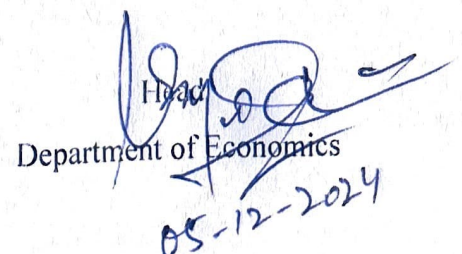 Head
Department of Economics
05-12-2024